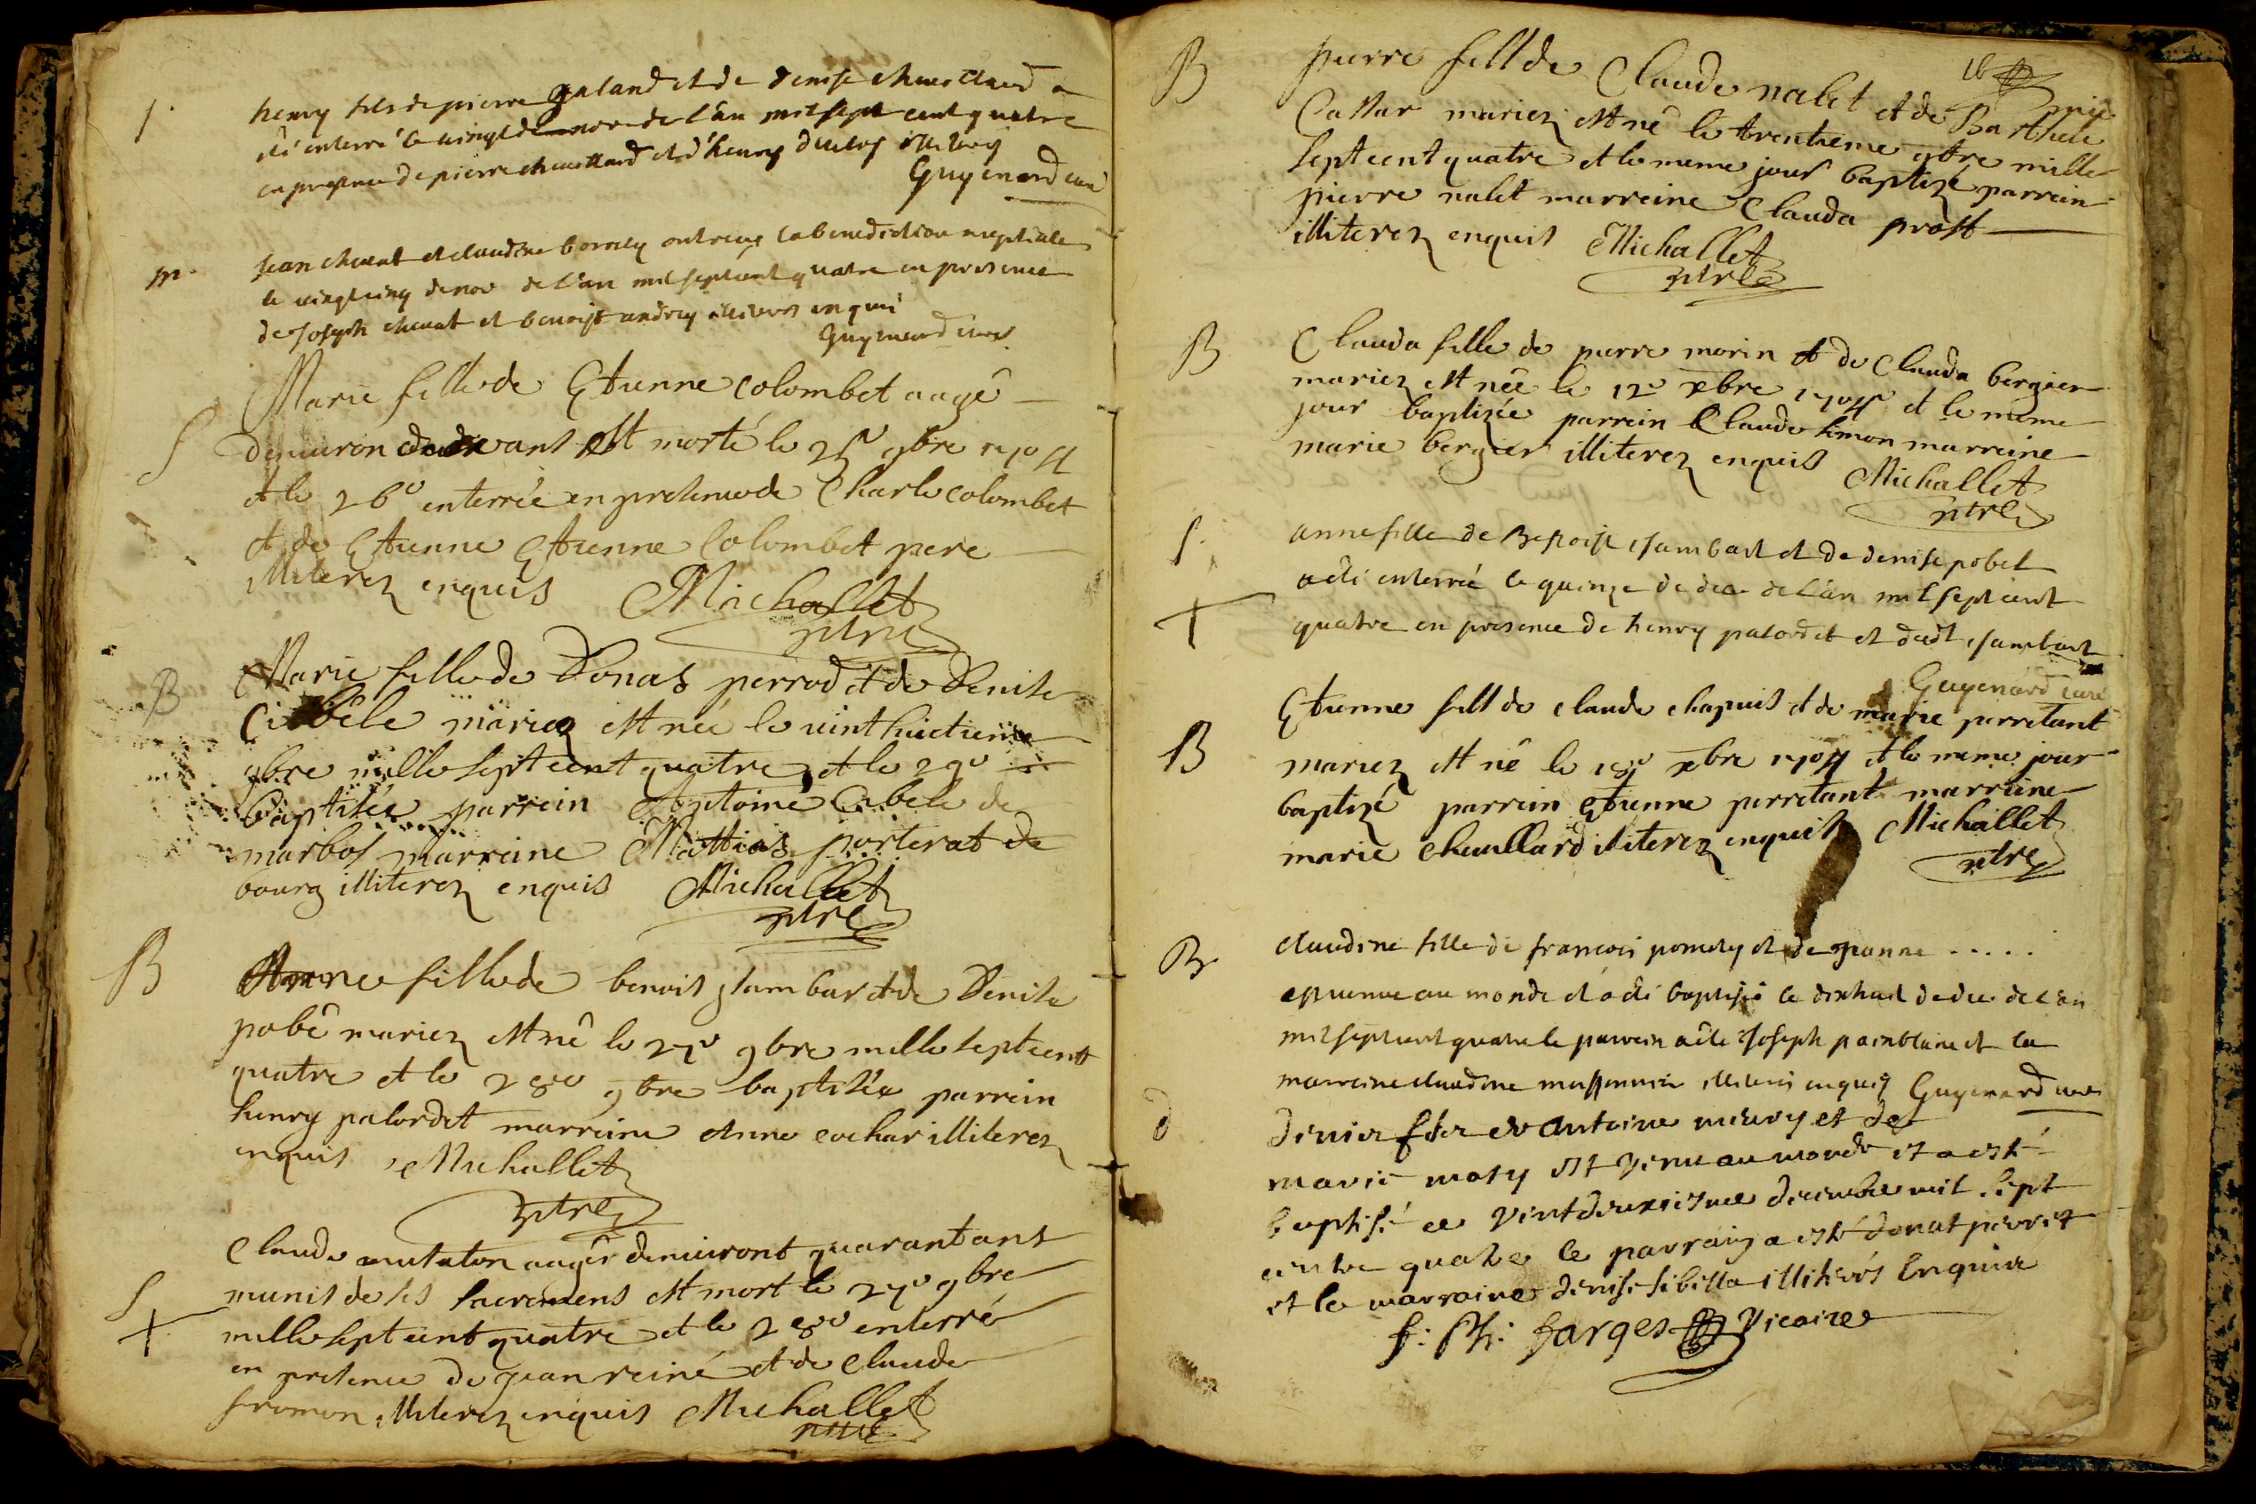 S.
henry fils de pierre galand et de denise chuettard a
été enterré le vingt de nove de l'an mil sept cent quatre
en presence de pierre chuettard et d'henry duclos illiterés
Guymard curé
m.
jean chanat et claudine borrey ont receu la benediction nuptiale
le vingt cinq de nov de l'an mil sept cent quatre en presence
de Joseph chanat et benoist andrey illiterés enqui
Guymard curé
Marie fille de Etienne Colombet augé
S
denviron ans est morte le 25e 9bre 1704
et le 26e enterrée en presence de Charle Colombet
et de Etienne Etienne Colombet pere
illiterez enquis Michallet
ptre
B
Marie fille de Donas perrod et de Denise
Cibele mariez est née le vint huictieme
9bre mille sept cent quatre et le 29e
baptisée parrein Antoine Cibele de
marbos marreine Mattias porterat de
bourg illiterez enquis Michallet
ptre
B
Anne fille de benois Jambar et de Denise
pobê mariez est né le 27e 9bre mille sept cent
quatre et le 28e 9bre baptisée parrein
henry palordet marreine Anne cochar illiterez
enquis Michallet
ptre
S
Claude mutaton augér denviront quarant ans
munis de ses sacremens est mort le 27e 9bre
+
mille sept cent quatre et le 28e enterré
en presence de jean reiné et de Claude
fromon illiterez enquis Michallet
ptre
16
B
pierre fill de Claude nalet et de Barthele mie
Cattar mariez est né le trentieme 9bre mille
sept cent quatre et le meme jour baptizé parrein
pierre nalet marreine Clauda prost
illiterez enquis Michallet
ptre
B
Clauda fille de pierre morin et de Clauda bergier
mariez est née le 12e xbre 1704 et le meme
jour baptizée parrein Claude simon marreine
marie bergier illiterez enquis Michallet
ptre
S.
anne fille de Benoist Jambart et de denise pobet
a été enterrée le quinze de dec de l'an mil sept cent
+
quatre en presence de henry palordet et dudt Jambart
Guymard curé
B
Etienne fill de claude chapuis et de marie perretant
mariez est né le 18e xbre 1704 et le meme jour
baptizé parrein Etienne perretant marreine
marie chuullard illiterez enquis Michallet
ptre
B.
claudine fille de francois pomery et de jeanne .....
est venue au monde et a été baptisée le dixhuit de dec de l'an
mil sept cent quatre le parrein a été Joseph painblanc et la
marreine claudine massonnier illiterés enquis Guymard curé
d
Denier fils de Antoine mievry et de
marie mory est venu au monde et a esté
baptisé ce vint deuxiesme decembre mil sept
centre quatre le parrain a esté donat pierret
et la marraine denise sibilla illiterés Enquire
f: Ph: farges Vicaire